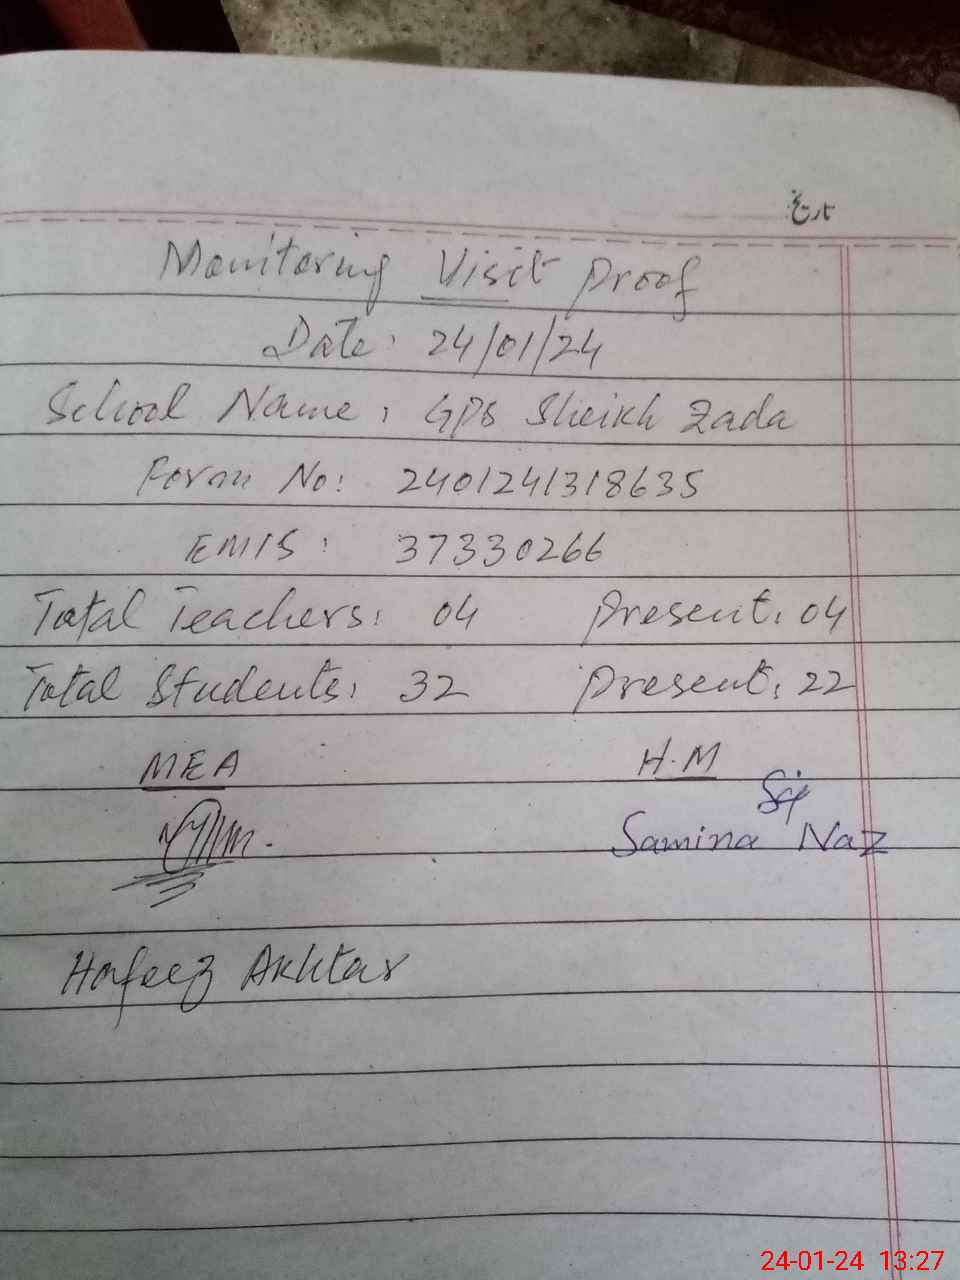 تاریخ
Monitoring Visit Proof
Date: 24/01/24
School Name: GPS Sheikh Zada
Form No: 2401241318635
EMIS: 37330266
Total Teachers: 04 Present: 04
Total Students: 32 Present: 22
MEA H.M
Samina Naz
Hafeez Akhtar
24-01-24 13:27